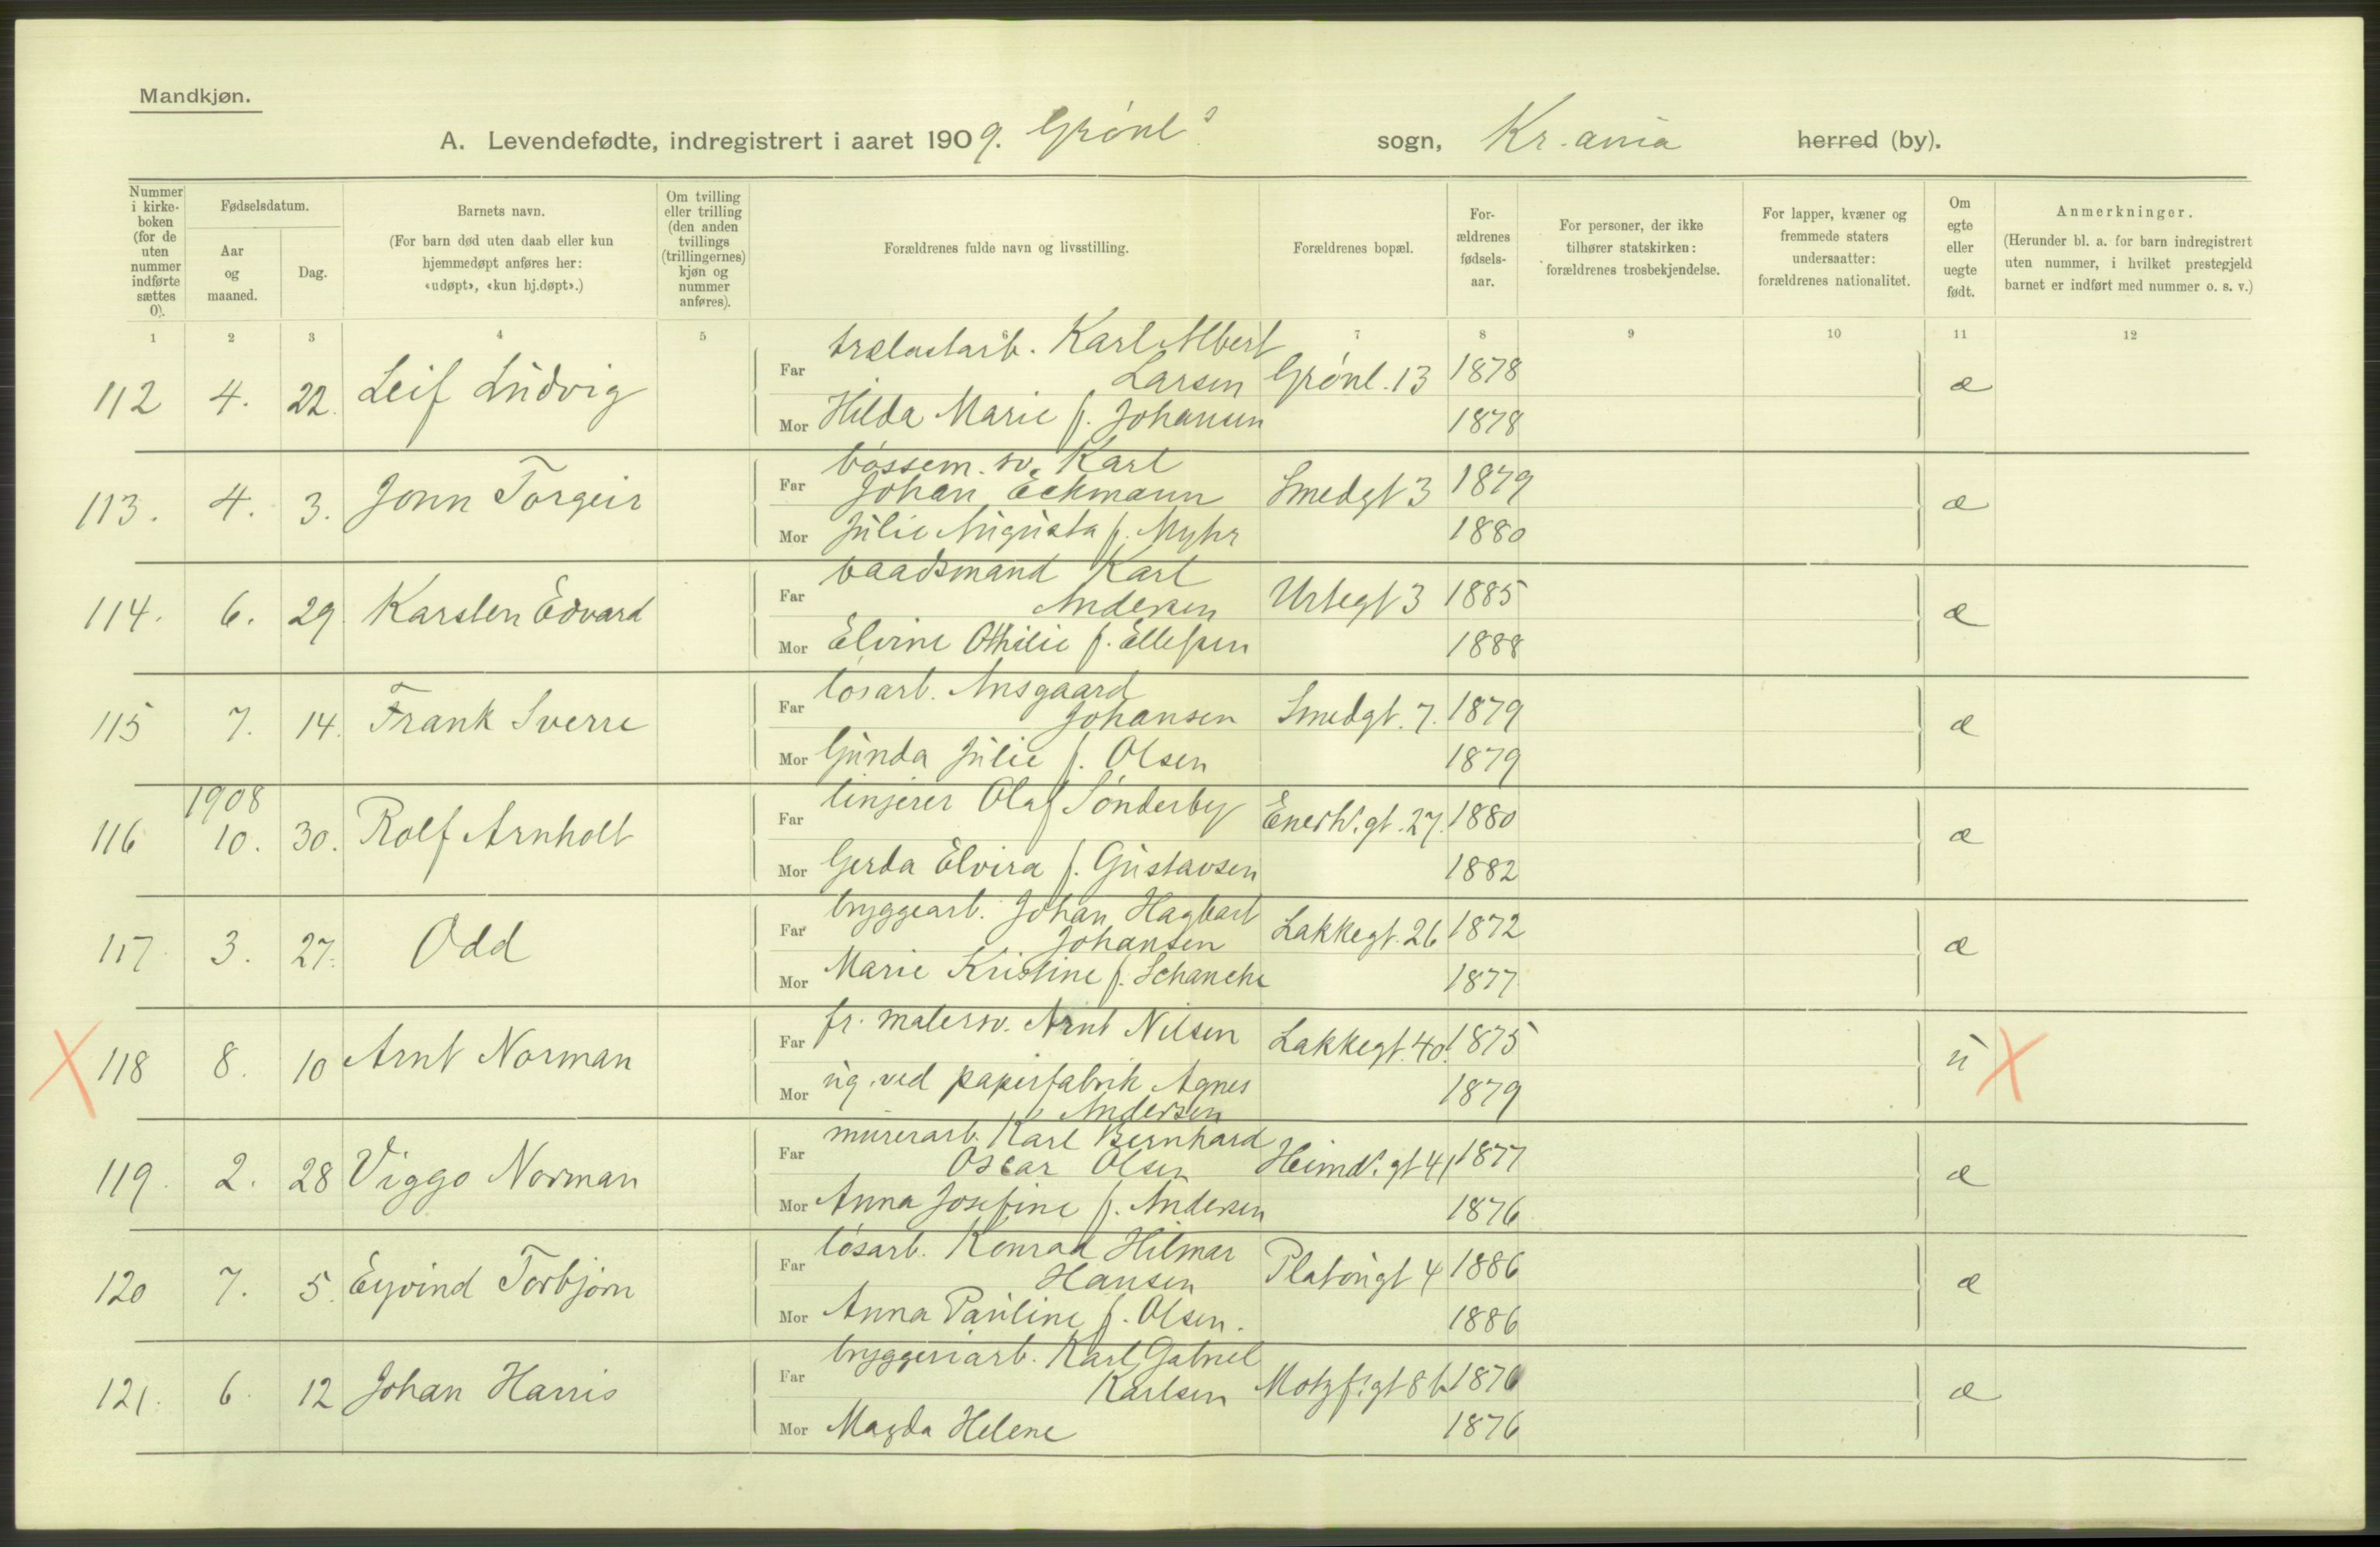 Mandkjøn.
A. Levendefødte, indregistrert i aaret 1909. Grönl s sogn, Kr.ania herred (by).
Nummer i kirkeboken (for de uten nummer indførte sættes 0).
Fødselsdatum.
Aar og maaned.
Dag.
Barnets navn.
(For barn død uten daab eller kun hjemmedøpt anføres her: «udøpt», «kun hj.døpt».)
Om tvilling eller trilling (den anden tvillings (trillingernes) kjøn og nummer anføres).
Forældrenes fulde navn og livsstilling.
Forældrenes bopæl.
Forældrenes fødselsaar.
For personer, der ikke tilhører statskirken: forældrenes trosbekjendelse.
For lapper, kvæner og fremmede staters undersaatter: forældrenes nationalitet.
Om egte eller uegte født.
Anmerkninger.
(Herunder bl. a. for barn indregistrert uten nummer, i hvilket prestegjeld barnet er indført med nummer o. s. v.)
1 2 3 4 5 6 7 8 9 10 11 12
112 4. 22. Leif Ludvig Far trælastarb. Karl Albert Larsen Grönl. 13 1878 æ
Mor Hilda Marie f. Johansen 1878
113. 4. 3. Jonn Torgeir Far bøssem. sv. Karl Johan Eckmann Smedgt 3 1879 æ
Mor Julie Augusta f. Myhr 1880
114. 6. 29. Karsten Edvard Far baadsmand Karl Andersen Urtegt 3 1885 æ
Mor Elvine Othilie f. Ellefsen 1888
115 7. 14. Frank Sverre Far løsarb. Ansgaard Johansen Smedgt. 7. 1879 æ
Mor Gunda Julie f. Olsen 1879
116 1908 10. 30. Rolf Arnholt Far linjerer Olaf Sønderby Enerh.gt. 27. 1880 æ
Mor Gerda Elvira f. Gustavsen 1882
117 3. 27. Odd Far bryggearb. Johan Hagbart Johansen Lakkegt. 26 1872 æ
Mor Marie Kristine f. Schanche 1877
118 8. 10 Arnt Norman Far fr. malersv. Arnt Nilsen Lakkegt. 40. 1875 u
Mor ug. ved papirfabrik Agnes Andersen 1879
119. 2. 28 Viggo Norman Far murerarb. Karl Bernhard Oscar Olsen Heimd.gt 41 1877 æ
Mor Anna Josefine f. Andersen 1876
120 7. 5. Eyvind Torbjørn Far løsarb. Konrad Hilmar Hansen Platougt 4 1886 æ
Mor Anna Pauline f. Olsen. 1886
121. 6. 12 Johan Harris Far bryggeriarb. Karl Gabriel Karlsen Motzf.gt 8 b 1876 æ
Mor Magda Helene 1876